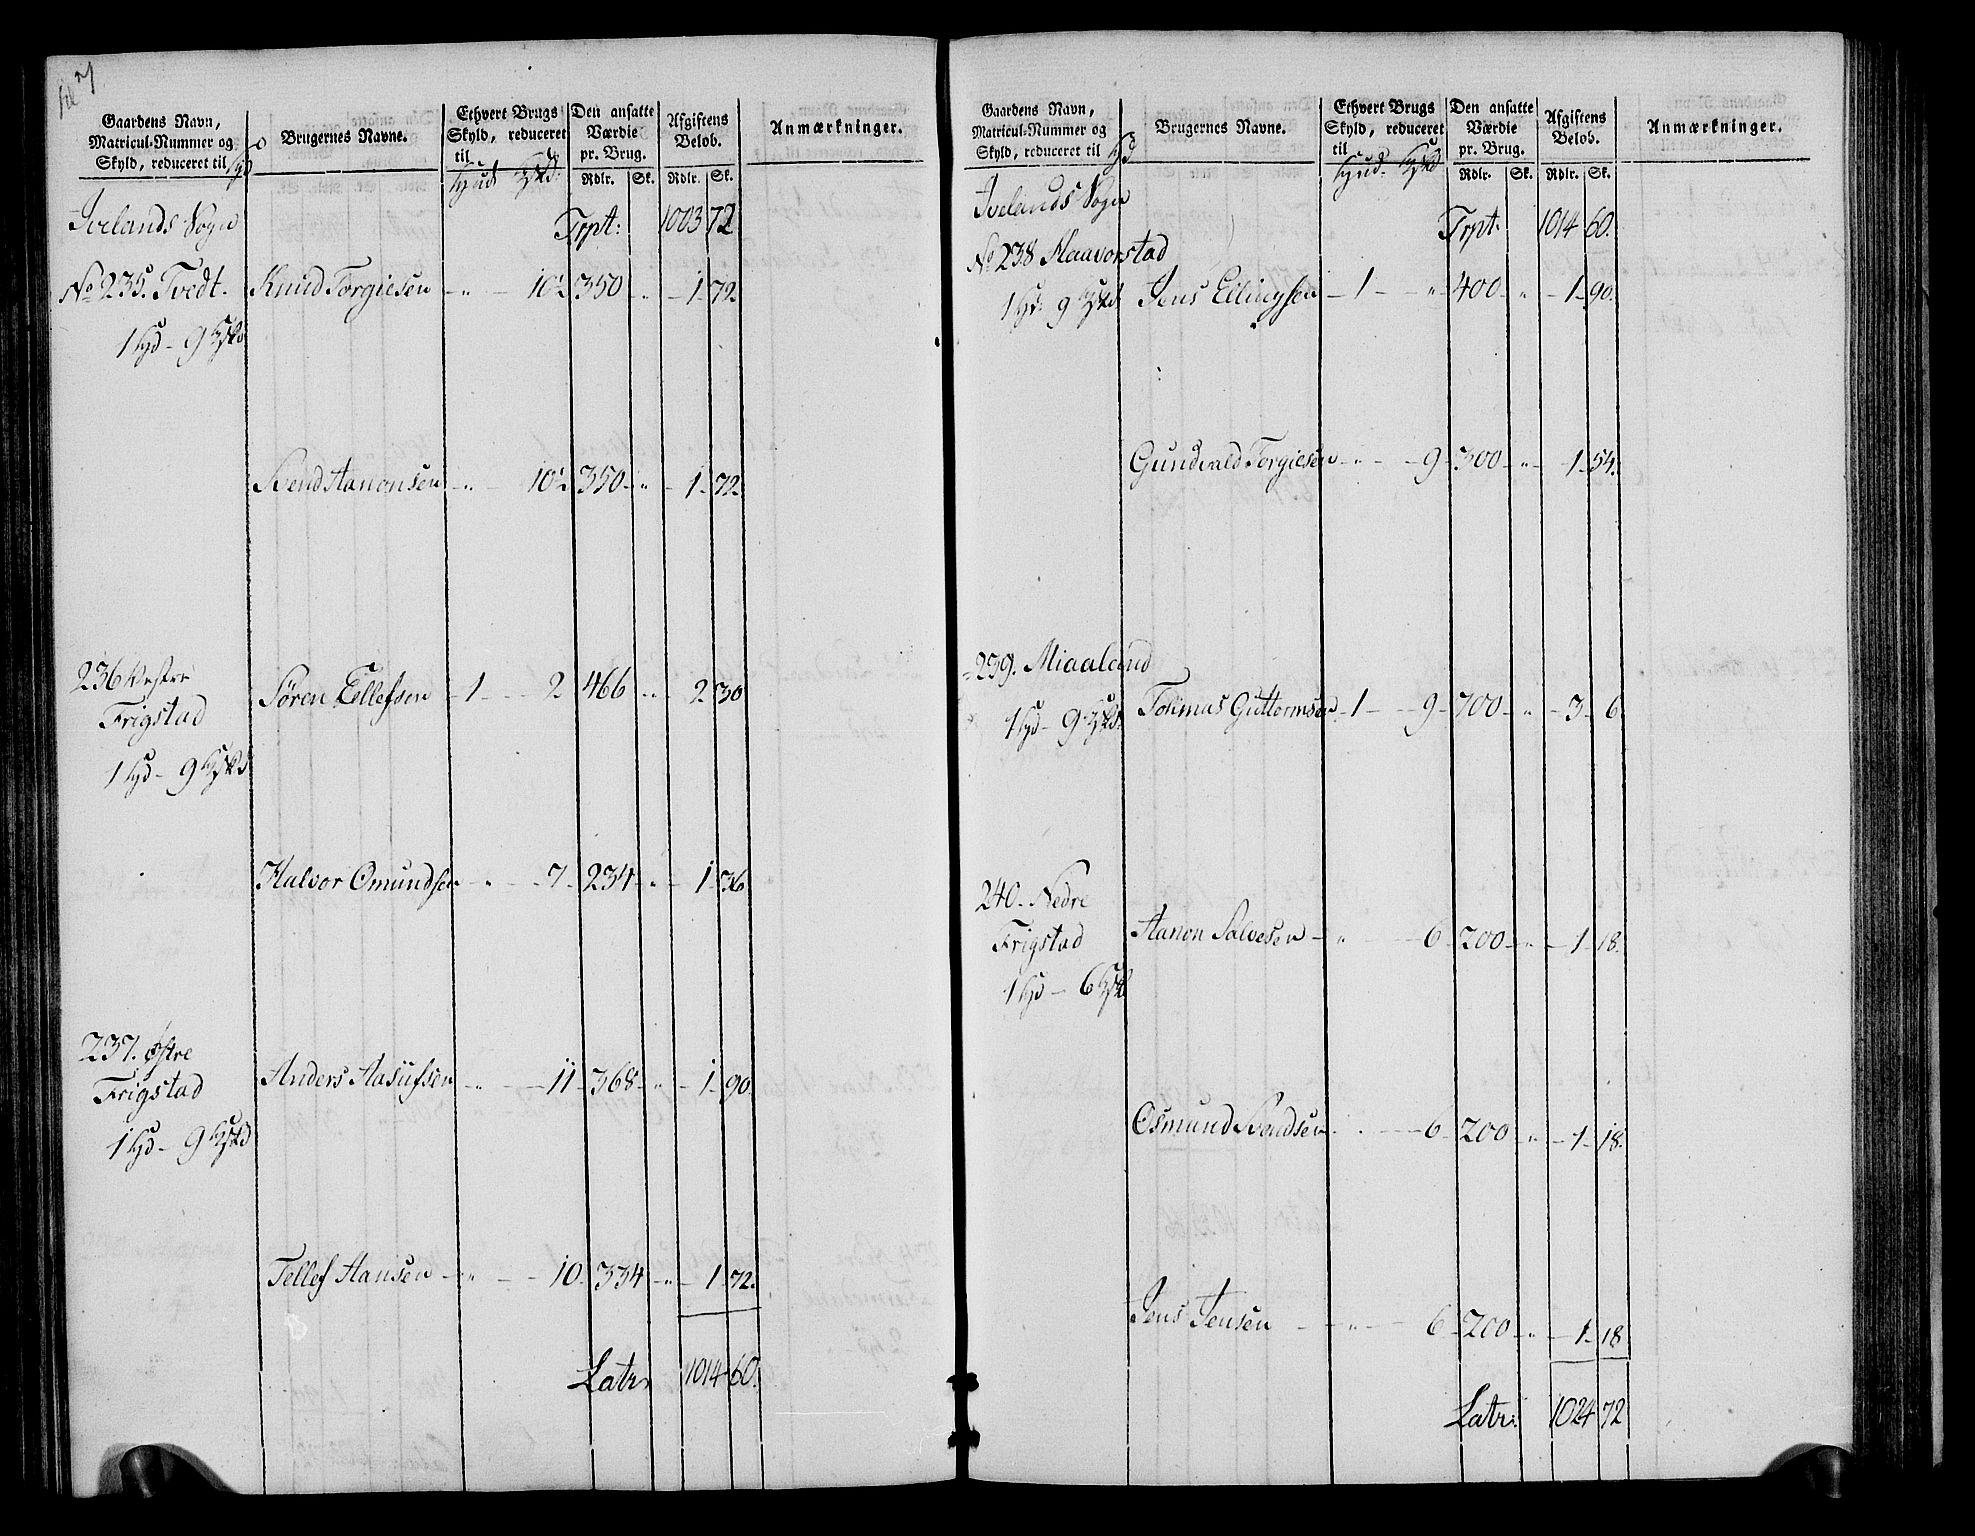 Gaardens Navn,
Matricul-Nummer og
Skyld, reduceret til
Brugernes Navne.
Ethvert Brugs
Skyld, reduceret
til
Den ansatte
Værdie
pr. Brug.
Rdlr. Sk.
Afgiftens
Beløb.
Rdlr. Sk.
Anmærkninger.
Ivelands Sogn
Trpt: 1003 72
No 235. Tvedt. Knud Torgiesen - „ - 10½ 350 „ - 1 - 72.
1 hd - 9 
Svend Aanonsen - „ - 10½ 350 - „ - 1 - 72.
236 Vestre
Frigstad Søren Tellefsen - 1 - - 2 466 - „ - 2 - 30
1 hd - 9 
Halvor Omundsen - „ - 7 - 234 - „ - 1 - 36
237. Østre
Frigstad Anders Aasufsen - „ - 11 - 368 - „ - 1 - 90.
1 hd - 9 
Tellef Hansen - „ - 10 - 334 - „ - 1 - 72.
Latr. 1014 - 60.
Gaardens Navn,
Matricul-Nummer og
Skyld, reduceret til
Brugernes Navne.
Ethvert Brugs
Skyld, reduceret
til
Den ansatte
Værdie
pr. Brug.
Rdlr. Sk.
Afgiftens
Beløb.
Rdlr. Sk.
Anmærkninger.
Ivelands Sogn
Trpt. 1014 60.
No 238 Haavorstad
1 hd. 9 Jens Ellingsen - 1 - „ - 400 - „ - 1 - 90.
Gundvald Torgiesen - „ - 9 - 300 - „ - 1 - 54.
239. Miaaland
1 hd - 9 Tolimas Guttormsen - 1 - 9 - 700 - „ - 3 - 6.
240. Nedre
Frigstad Aanon Salvesen - „ - 6 - 200 - „ - 1 - 18.
1 hd - 6 
Osmund Svendsen - 6 - 200 „ - 1 - 18.
Jens Jensen - „ - 6 - 200 - „ - 1 - 18
Latr: 1024 72